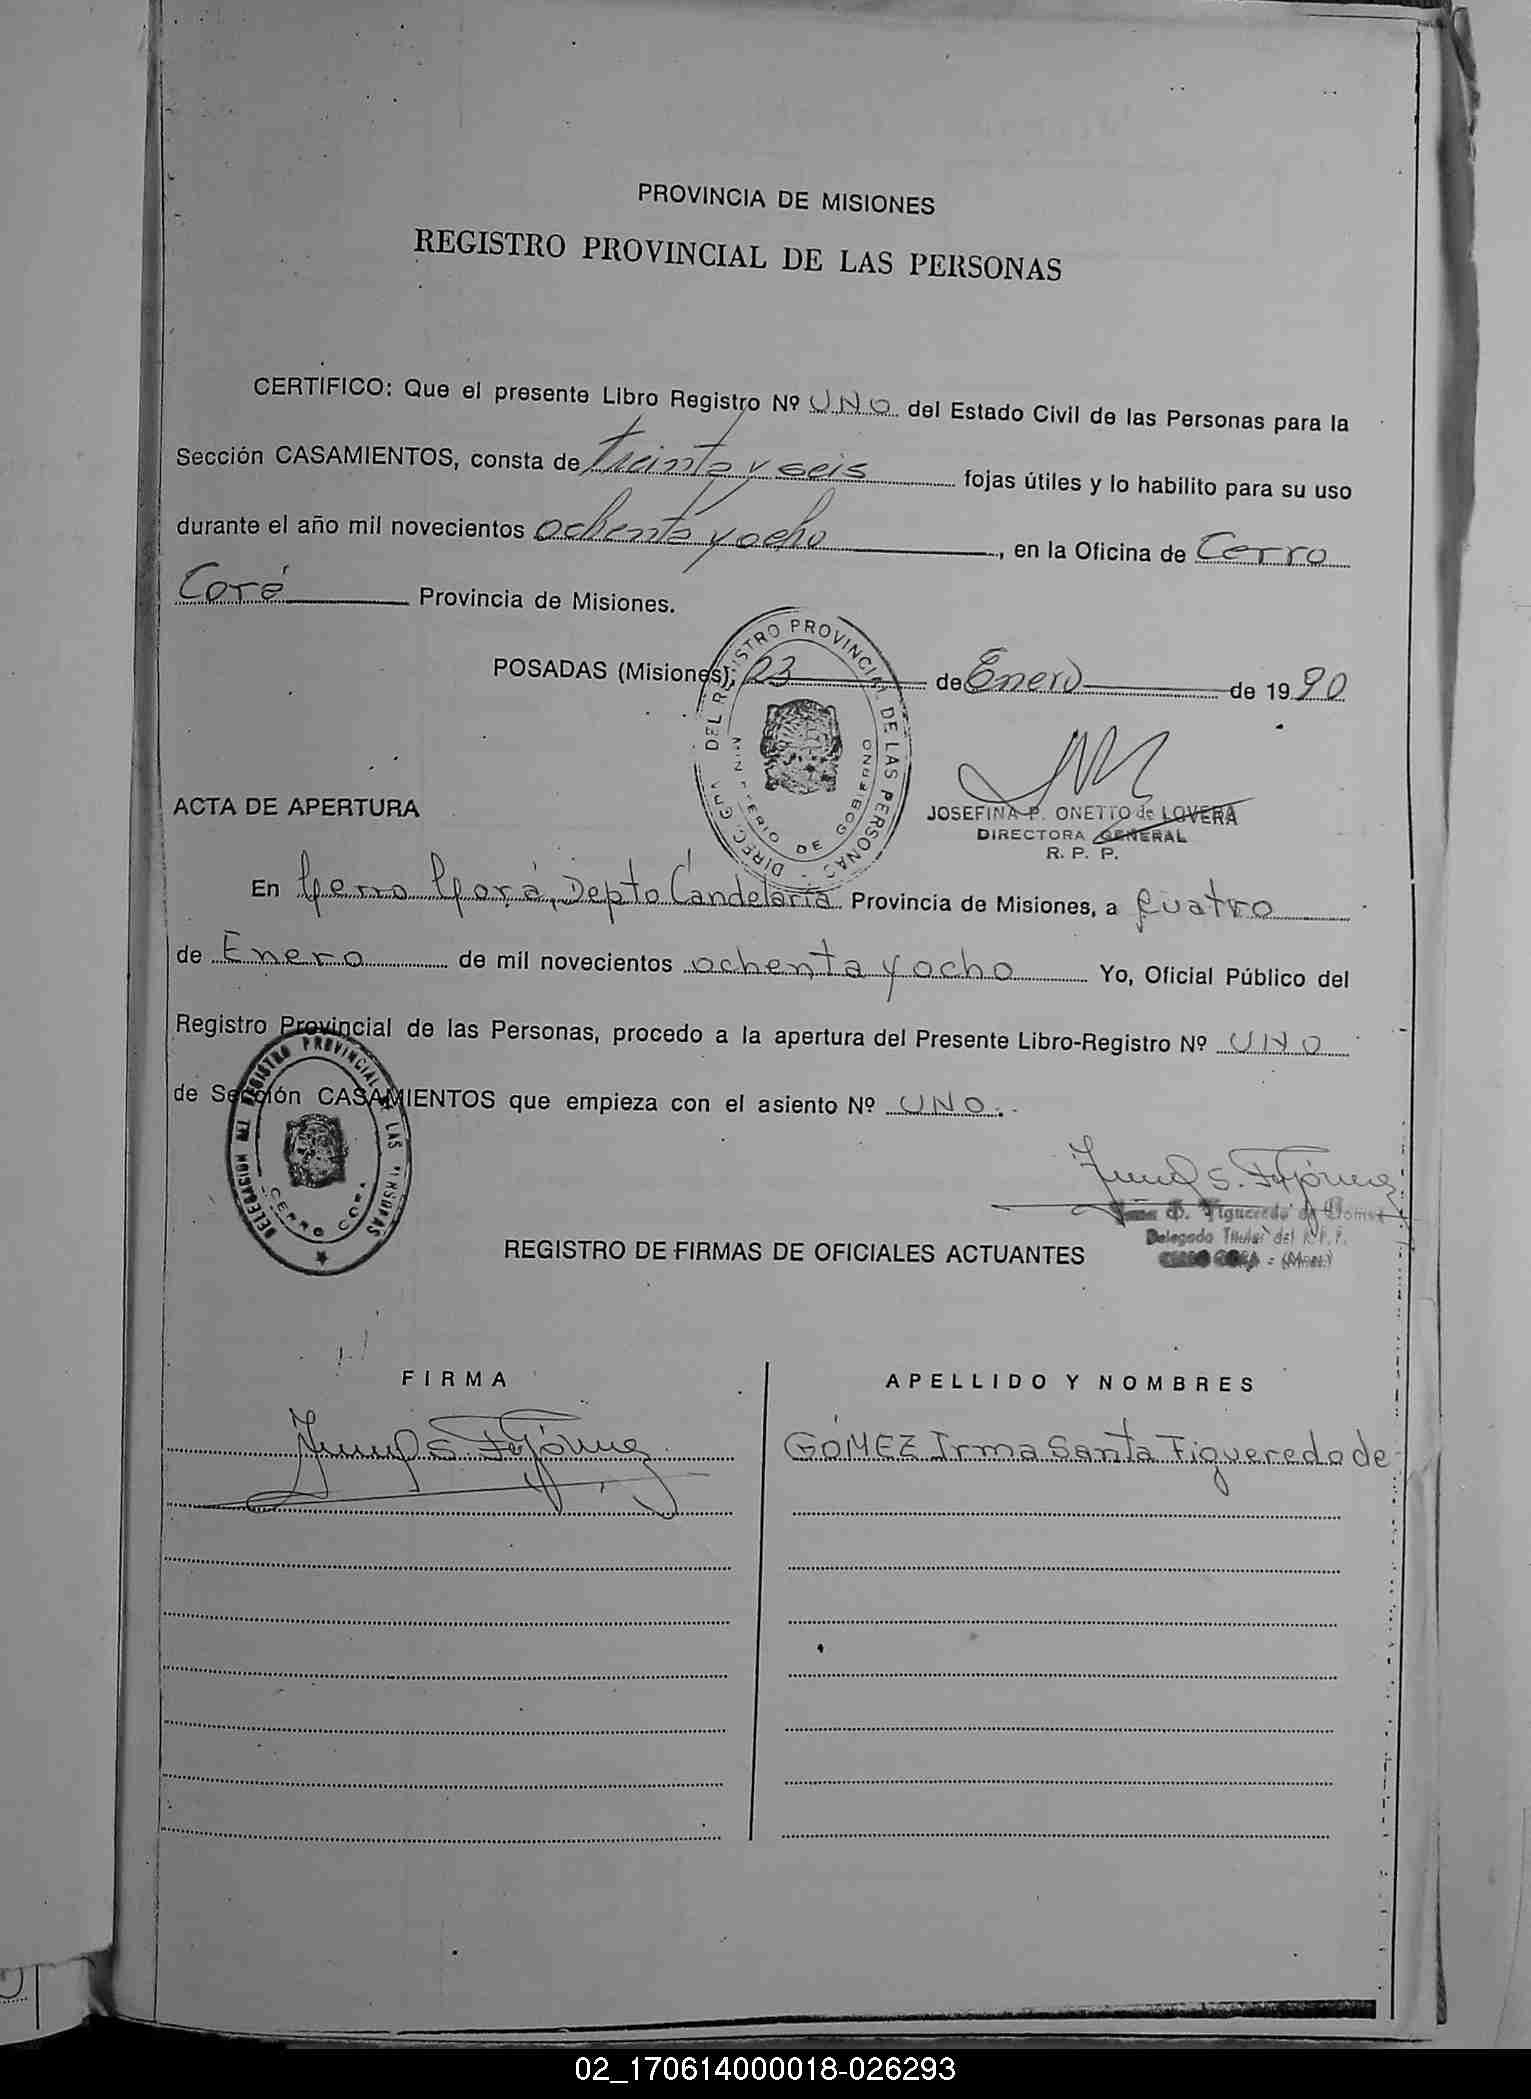 PROVINCIA DE MISIONES
REGISTRO PROVINCIAL DE LAS PERSONAS
CERTIFICO: Que el presente Libro Registro Nº UNO del Estado Civil de las Personas para la
Sección CASAMIENTOS, consta de treinta y seis fojas útiles y lo habilito para su uso
durante el año mil novecientos ochenta y ocho, en la Oficina de Cerro
Corá Provincia de Misiones.
POSADAS (Misiones), 23 de Enero de 1990
DIREC. GRAL. DEL REGISTRO PROVINCIAL DE LAS PERSONAS
MINISTERIO DE GOBIERNO
JOSEFINA P. ONETTO de LOVERA
DIRECTORA GENERAL
R. P. P.
ACTA DE APERTURA
En Cerro Corá, Depto Candelaria Provincia de Misiones, a Cuatro
de Enero de mil novecientos ochenta y ocho Yo, Oficial Público del
Registro Provincial de las Personas, procedo a la apertura del Presente Libro-Registro Nº UNO
de Sección CASAMIENTOS que empieza con el asiento Nº UNO.
DELEGACION DEL REGISTRO PROVINCIAL DE LAS PERSONAS
CERRO CORA
Irma S. Figueredo de Gomez
Delegado Titular del R.P.P.
CERRO CORA - (Mnes.)
REGISTRO DE FIRMAS DE OFICIALES ACTUANTES
FIRMA APELLIDO Y NOMBRES
GÓMEZ Irma Santa Figueredo de
02_170614000018-026293